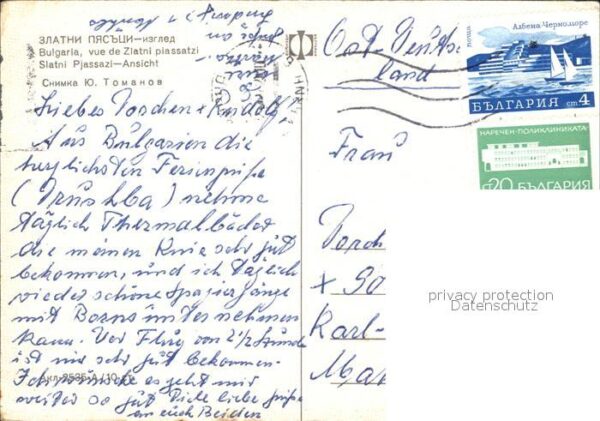 ЗЛАТНИ ПЯСЪЦИ—изглед
Bulgaria, vue de Zlatni piassatzi
Slatni Pjassazi—Ansicht
Снимка Ю. Томанов
Liebes Dorchen + Rudolf
Aus Bulgarien die
herzlichsten Feriengrüße
(Drushba) nehme
täglich Thermalbäder
die meinen Knie sehr gut
bekommen, und ich täglich
wieder schöne Spaziergänge
mit Boris unternehmen
kann. Der Flug von 2½ Stunde
ist mir sehr gut bekommen.
Ich wünsche es geht mir
weiter so gut Viele liebe Grüße
an euch Beiden
Дкл-8535-А/10
поща
Албена Черноморе
БЪЛГАРИЯ ст. 4
НАРЕЧЕН-ПОЛИКЛИНИКАТА
ст 20 БЪЛГАРИЯ
Ost-Deutsch
land
Frau
Dorch
+ 90
Karl-
Mar
privacy protection
Datenschutz